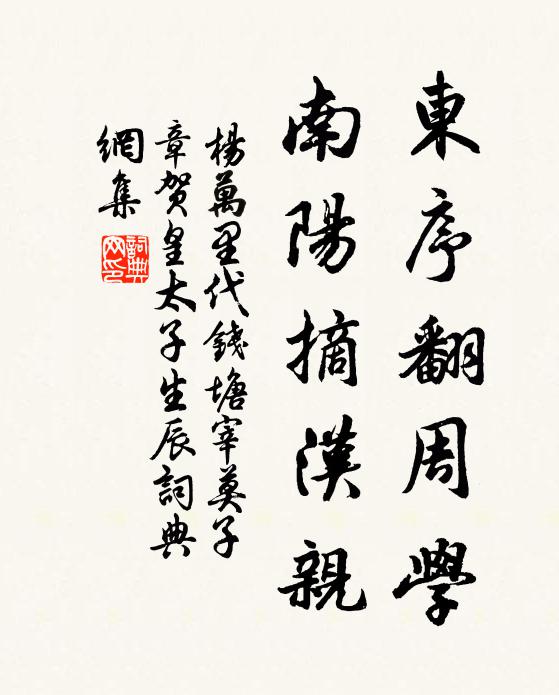 東序翻周學
南陽摘漢親
楊萬里代錢塘宰莫子
章賀皇太子生辰詞典
網集
詞典网印